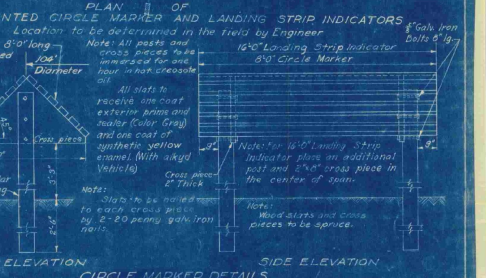 PLAN OF
NTED CIRCLE MARKER AND LANDING STRIP INDICATORS
Location to be determined in the field by Engineer
8'-0" long
104°
Diameter
Note: All posts and
cross pieces to be
immersed for one
hour in hot creosote
oil.
All slats to
receive one coat
exterior prime and
sealer (Color Gray)
and one coat of
synthetic yellow
enamel. (With alkyd
Vehicle)
Cross piece
Cross piece
2" Thick
Note:
Slats to be nailed
to each cross piece
by 2-20 penny galv. iron
nails.
3'-3"
2'-6"
ELEVATION
Galv. Iron
Bolts 8" lg.
16'-0" Landing Strip Indicator
8'-0" Circle Marker
9"
9"
Note: For 16'-0" Landing Strip
Indicator place an additional
post and 2"x8" cross piece in
the center of span.
Note:
Wood slats and cross
pieces to be spruce.
SIDE ELEVATION
CIRCLE MARKER DETAILS